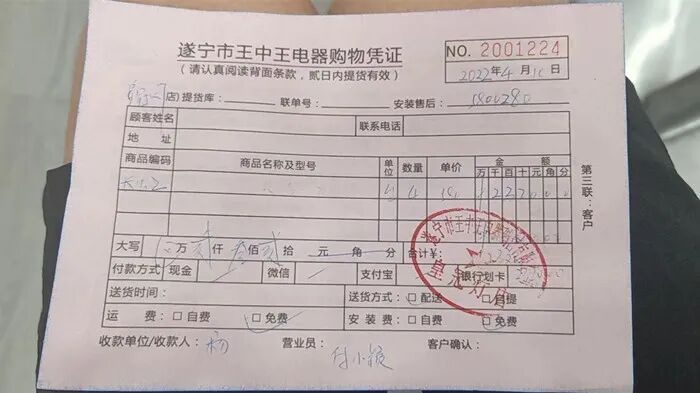 遂宁市王中王电器购物凭证
(请认真阅读背面条款，贰日内提货有效)
NO. 2001224
2022年4月10日
店)提货库: 联单号: 安装售后: 5800280
顾客姓名 联系电话
地 址
商品编码 商品名称及型号 单位 数量 单价 金 额
万 千 百 十 元 角 分
4
第三联:客户
大写 万 贰 仟 佰 贰 拾 元 角 分 合计¥:
付款方式 现金 微信 支付宝 银行划卡
送货时间: 送货方式: □ 配送 □ 自提
运 费: □ 自费 □ 免费 安 装 费: □ 自费 □ 免费
收款单位/收款人: 杨 营业员: 付小 客户确认:
遂宁市王中王电器